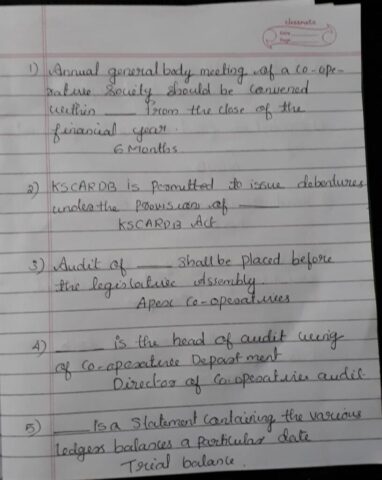 classmate
Date
Page
1) Annual general body meeting of a co-ope-
rative Society should be convened
within ____ from the close of the
financial year.
6 Months
2) KSCARDB is permitted to issue debentures
under the provision of ____
KSCARDB Act
3) Audit of ____ shall be placed before
the legislative Assembly.
Apex Co-operatives
4) ____ is the head of audit wing
of Co-operative Department
Director of Co-operative audit
5) ____ Is a Statement Containing the various
ledgers balances a particular date
Trial balance.